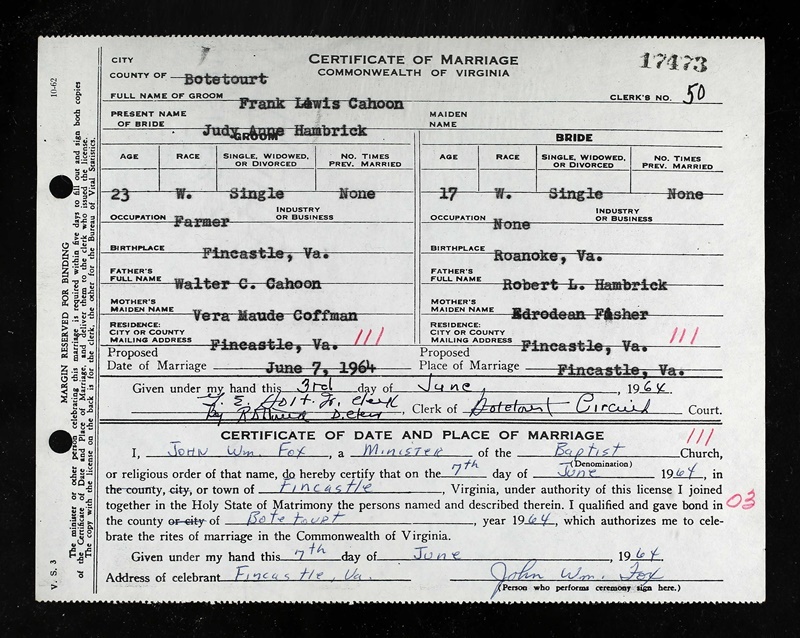 CITY
CERTIFICATE OF MARRIAGE
17473
COUNTY OF Botetourt
COMMONWEALTH OF VIRGINIA
FULL NAME OF GROOM Frank Lewis Cahoon
CLERK'S NO. 50
PRESENT NAME OF BRIDE Judy Anne Hambrick
MAIDEN NAME
GROOM
BRIDE
AGE RACE SINGLE, WIDOWED, OR DIVORCED NO. TIMES PREV. MARRIED
AGE RACE SINGLE, WIDOWED, OR DIVORCED NO. TIMES PREV. MARRIED
23 W. Single None
17 W. Single None
OCCUPATION Farmer INDUSTRY OR BUSINESS
OCCUPATION None INDUSTRY OR BUSINESS
BIRTHPLACE Fincastle, Va.
BIRTHPLACE Roanoke, Va.
FATHER'S FULL NAME Walter C. Cahoon
FATHER'S FULL NAME Robert L. Hambrick
MOTHER'S MAIDEN NAME Vera Maude Coffman
MOTHER'S MAIDEN NAME Edrodean Fisher
RESIDENCE: CITY OR COUNTY MAILING ADDRESS Fincastle, Va. 111
RESIDENCE: CITY OR COUNTY MAILING ADDRESS Fincastle, Va. 111
Proposed Date of Marriage June 7, 1964
Proposed Place of Marriage Fincastle, Va.
Given under my hand this 3rd day of June, 1964
Clerk of Botetourt Circuit Court.
CERTIFICATE OF DATE AND PLACE OF MARRIAGE 111
I, John Wm. Fox, a Minister of the Baptist Church,
(Denomination)
or religious order of that name, do hereby certify that on the 7th day of June 1964, in
the county, city, or town of Fincastle, Virginia, under authority of this license I joined
together in the Holy State of Matrimony the persons named and described therein. I qualified and gave bond in 03
the county or city of Botetourt, year 1964, which authorizes me to cele-
brate the rites of marriage in the Commonwealth of Virginia.
Given under my hand this 7th day of June, 1964
Address of celebrant Fincastle, Va. John Wm. Fox
(Person who performs ceremony sign here.)
V. S. 3
10-62
MARGIN RESERVED FOR BINDING
The minister or other person celebrating this marriage is required within five days to fill out and sign both copies
of the Certificate of Date and Place of Marriage, and deliver them to the clerk who issued the license.
The copy with the license on the back is for the clerk, the other for the Bureau of Vital Statistics.